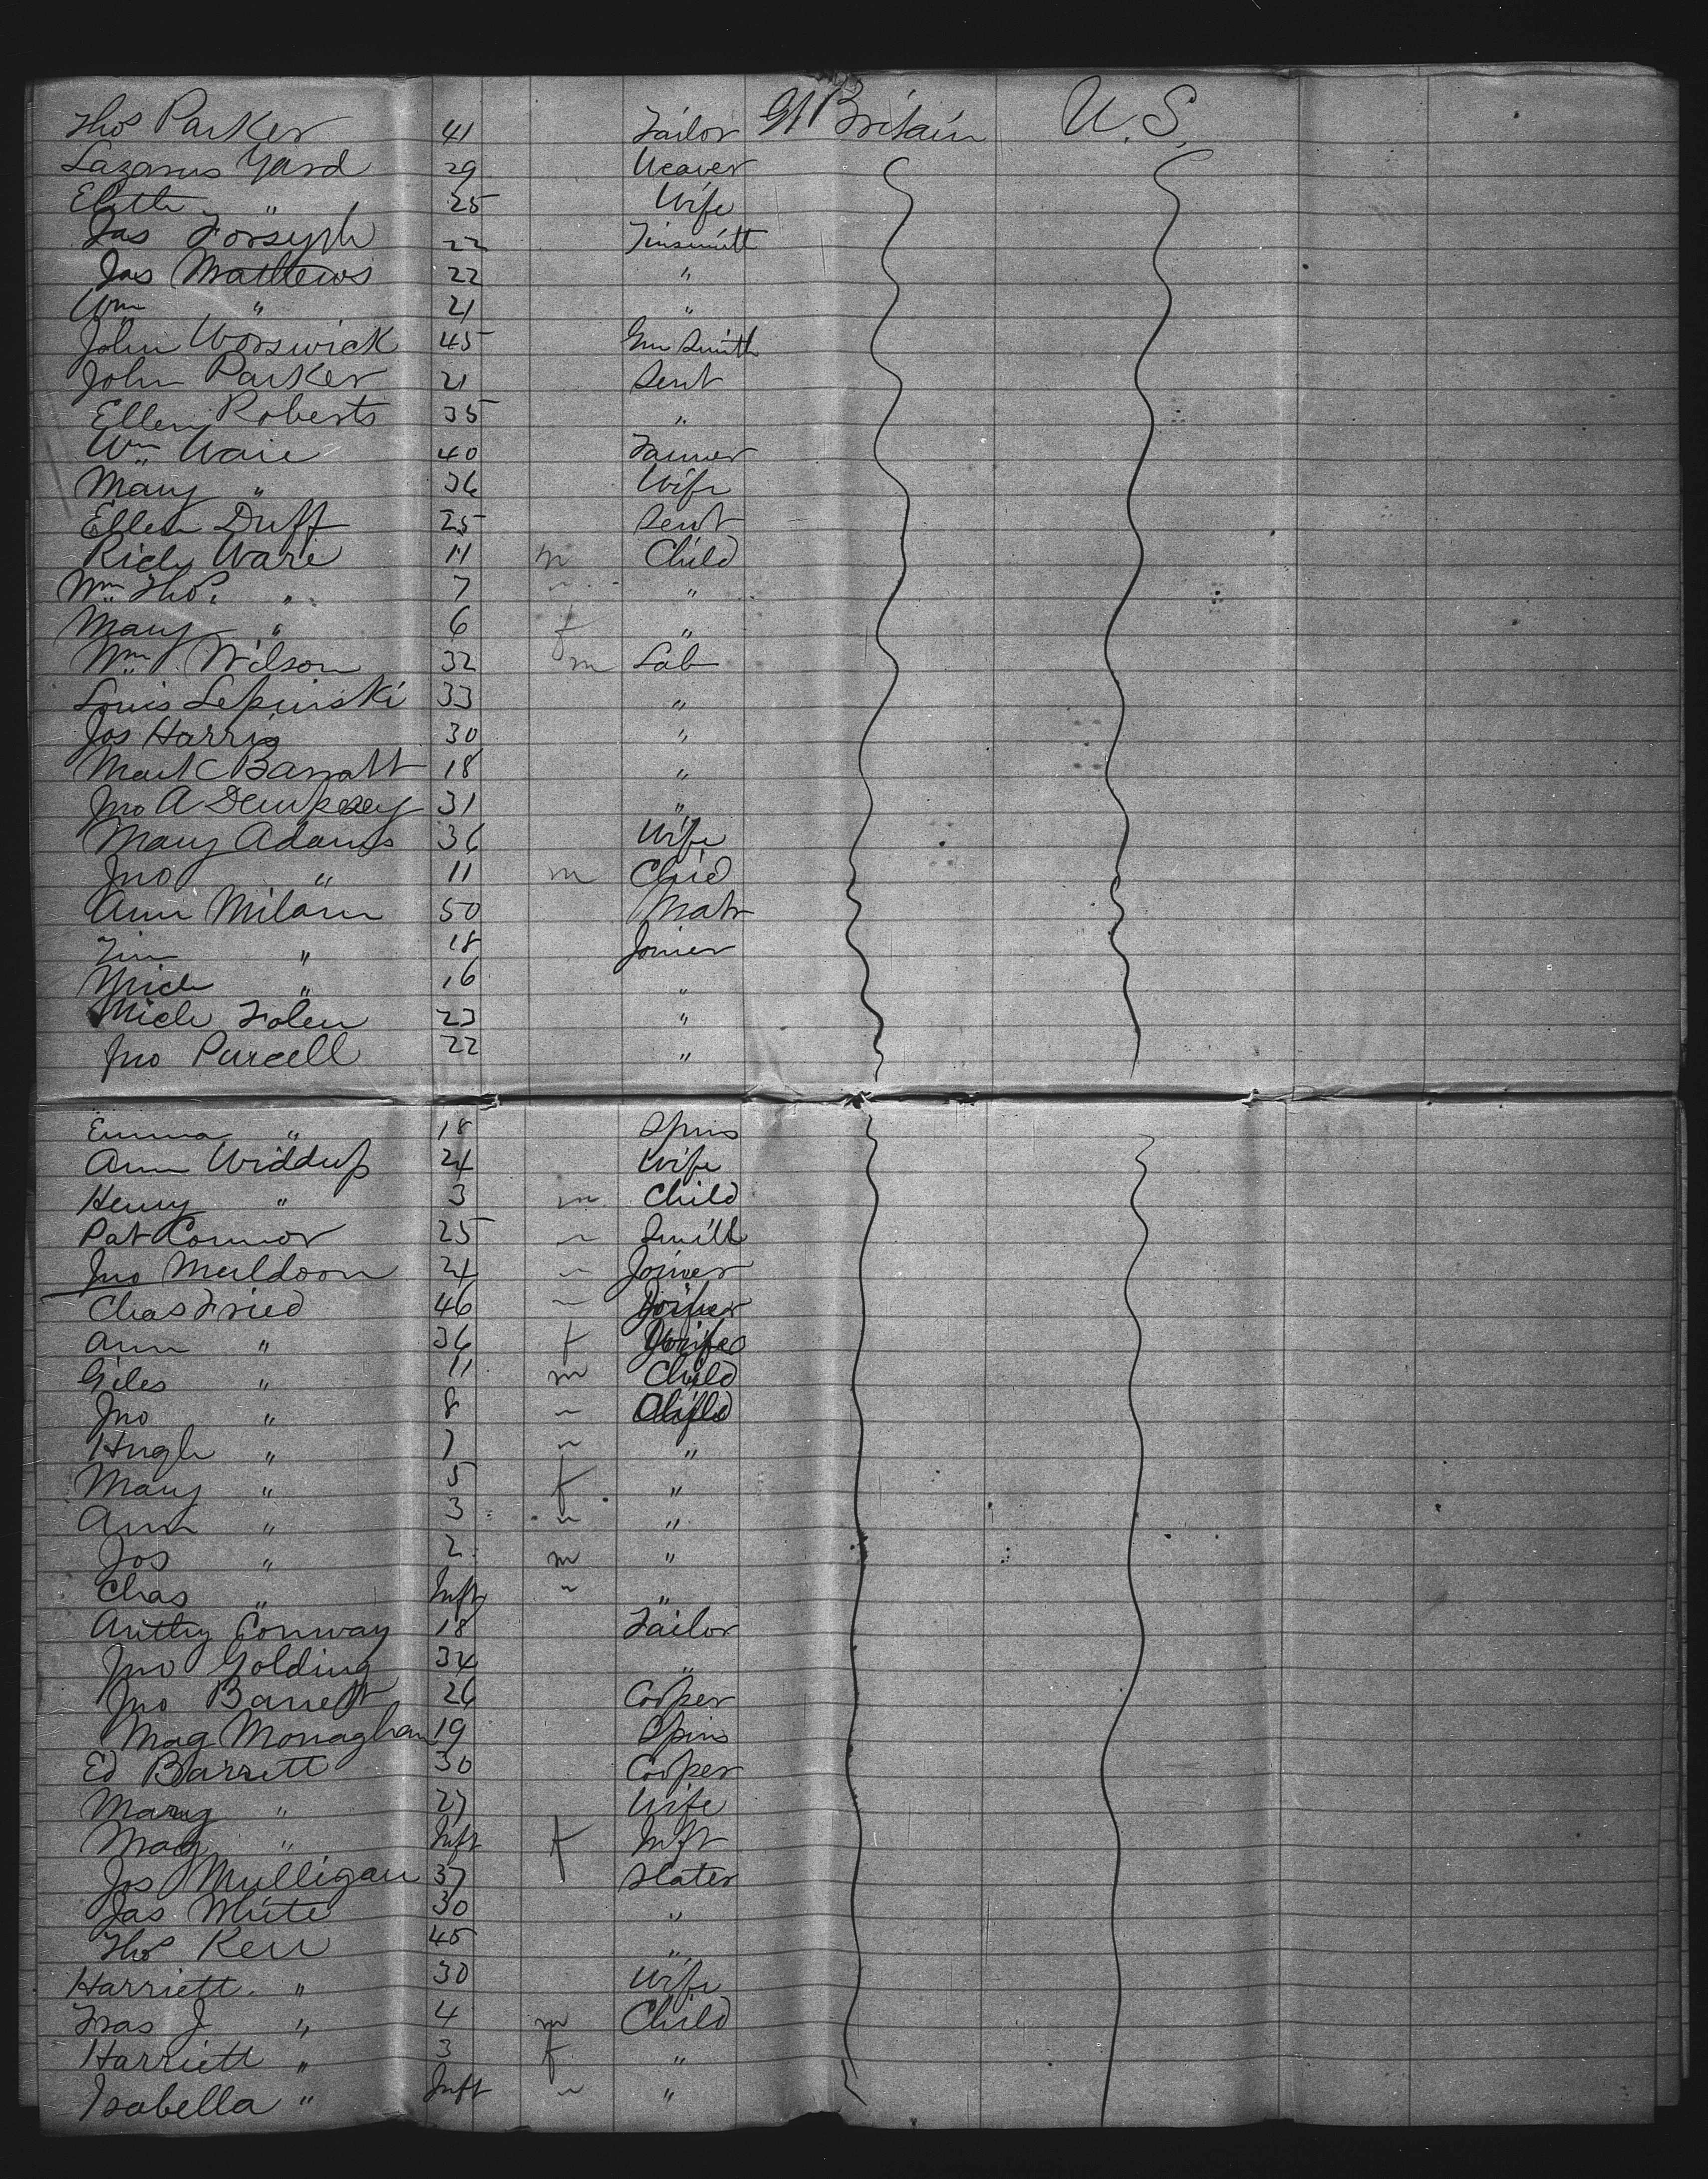 Thos Parker 41 Tailor Gt Britain U.S.
Lazarus Yard 29 Weaver
Elith " 25 Wife
Jas Forsyth 22 Tinsmith
Jas Mathews 22 "
Wm " 21 "
John Worswick 45 Gun Smith
John Parker 21 Sevt
Ellen Roberts 35 "
Wm Ware 40 Farmer
Mary " 36 Wife
Ellen Duff 25 Sevt
Rich Ware 11 m Child
Wm Thos " 7 " "
Mary " 6 f "
Wm Wilson 32 m Lab
Louis Lepinski 33 "
Jos Harris 30 "
Mark Barratt 18 "
Jno A Dempsey 31 "
Mary Adams 36 Wife
Jno " 11 m Child
Ann Milann 50 Matr
Tim " 18 Joiner
Mich " 16 "
Mich Folen 23 "
Jno Purcell 22 "
Emma " 18 Spins
Ann Widdup 24 Wife
Henry " 3 m Child
Pat Connor 25 " Smith
Jno Muldoon 24 " Joiner
Chas Fried 46 " Joiner
Ann " 36 f Wife
Giles " 11 m Child
Jno " 8 " Child
Hugh " 7 " "
Mary " 5 f "
Ann " 3 " "
Jos " 2 m "
Chas " Inft " "
Anthy Conway 18 Tailor
Jno Golding 34 "
Jno Barrett 26 Cooper
Mag Monaghan 19 Spins
Ed Barrett 30 Cooper
Mary " 27 Wife
Mag " Inft f Inft
Jos Mulligan 37 Slater
Jas White 30 "
Thos Kerr 45 "
Harriett " 30 Wife
Fras J " 4 m Child
Harriett " 3 f "
Isabella " Inft " "